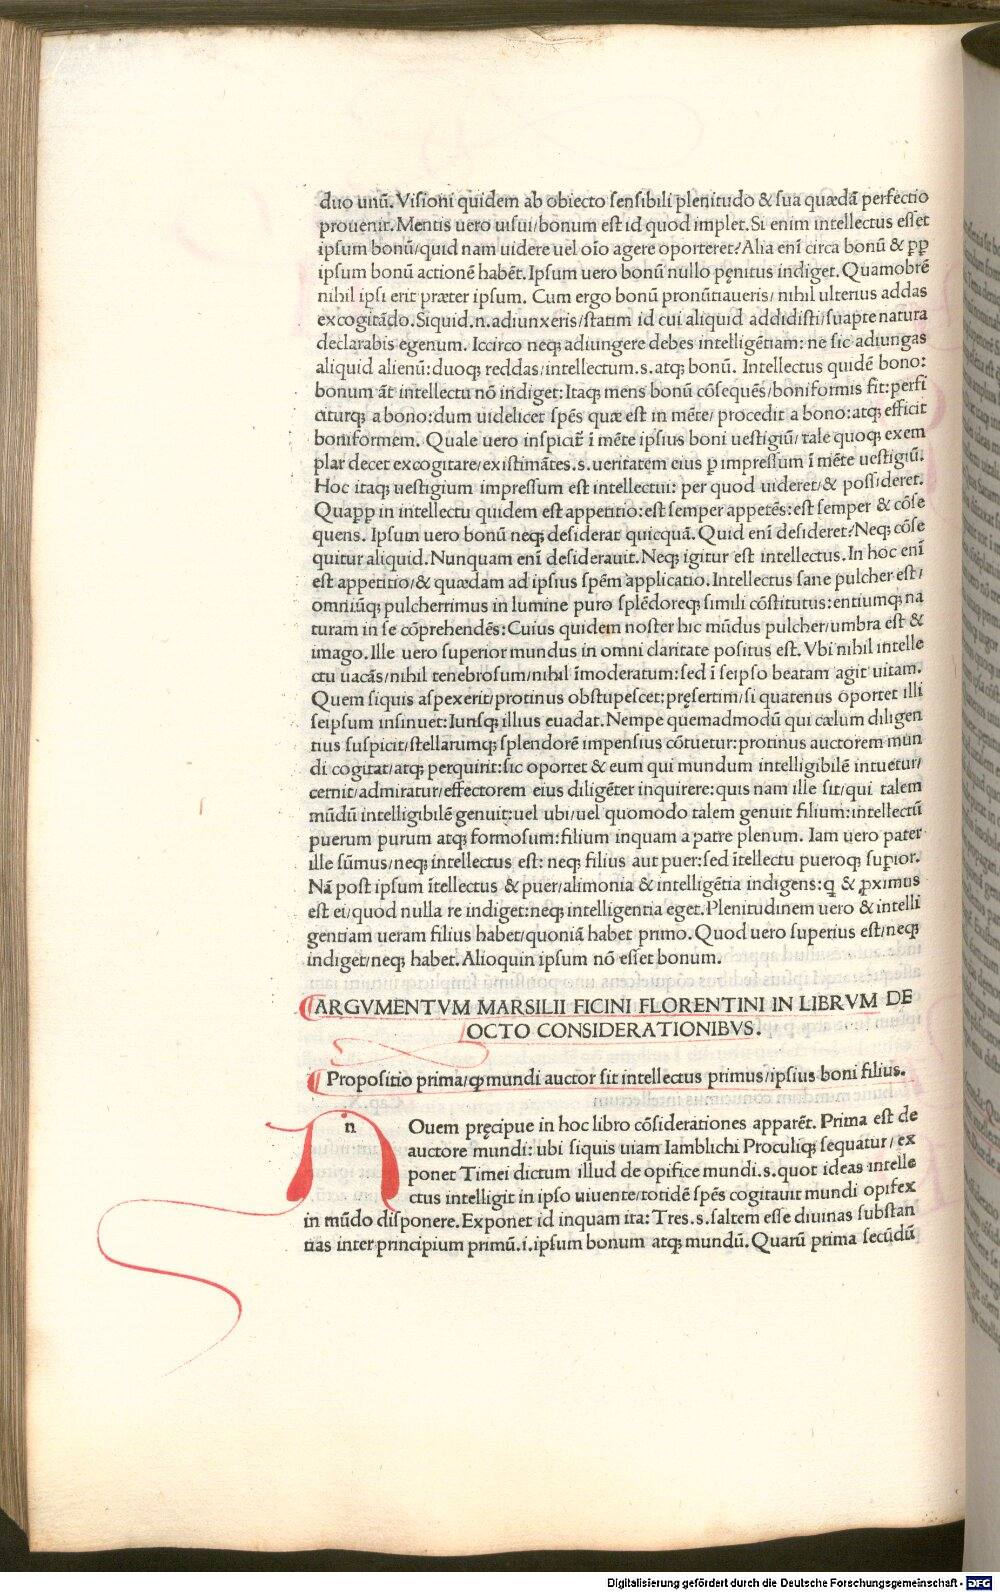 duo unū. Visioni quidem ab obiecto sensibili plenitudo & sua quædā perfectio
prouenit. Mentis uero uisui/bonum est id quod implet. Si enim intellectus esset
ipsum bonū/quid nam uidere uel oīo agere oporteret? Alia enī circa bonū & ꝓꝑ
ipsum bonū actionē habēt. Ipsum uero bonū nullo pęnitus indiget. Quamobrē
nihil ipsi erit præter ipsum. Cum ergo bonū pronūtiaueris/nihil ulterius addas
excogitādo. Siquid .n. adiunxeris/statim id cui aliquid addidisti/suapte natura
declarabis egenum. Iccirco neqꝫ adiungere debes intelligētiam: ne sic adiungas
aliquid alienū: duoqꝫ reddas/intellectum .s. atqꝫ bonū. Intellectus quidē bono:
bonum āt intellectu nō indiget: Itaqꝫ mens bonū cōsequēs/boniformis fit: perfi
citurqꝫ a bono: dum uidelicet spēs quæ est in mēte/procedit a bono: atqꝫ efficit
boniformem. Quale uero inspicit̄ ī mēte ipsius boni uestigiū/tale quoqꝫ exem
plar decet excogitare/existimātes .s. ueritatem eius ꝑ impressum ī mēte uestigiū.
Hoc itaqꝫ uestigium impressum est intellectui: per quod uideret/& possideret.
Quaꝓꝑ in intellectu quidem est appetitio: est semper appetēs: est semper & cōse
quens. Ipsum uero bonū neqꝫ desiderat quicquā. Quid enī desideret? Neqꝫ cōse
quitur aliquid. Nunquam enī desiderauit. Neqꝫ igitur est intellectus. In hoc enī
est appetitio/& quædam ad ipsius spēm applicatio. Intellectus sane pulcher est/
omniūqꝫ pulcherrimus in lumine puro splēdoreqꝫ simili cōstitutus: entiumqꝫ na
turam in se cōprehendēs: Cuius quidem noster hic mūdus pulcher/umbra est &
imago. Ille uero superior mundus in omni claritate positus est. Vbi nihil intelle
ctu uacās/nihil tenebrosum/nihil īmoderatum: sed ī seipso beatam agit uitam.
Quem siquis aspexerit/protinus obstupescet: pręsertim/si quatenus oportet illi
seipsum insinuet: Iunsqꝫ illius euadat. Nempe quemadmodū qui cælum diligen
tius suspicit/stellarumqꝫ splendorē impensius cōtuetur: protinus auctorem mun
di cogitat/atqꝫ perquirit: sic oportet & eum qui mundum intelligibilē intuetur/
cernit/admiratur/effectorem eius diligēter inquirere: quis nam ille sit/qui talem
mūdū intelligibilē genuit: uel ubi/uel quomodo talem genuit filium: intellectū
puerum purum atqꝫ formosum: filium inquam a patre plenum. Iam uero pater
ille sūmus/neqꝫ intellectus est: neqꝫ filius aut puer: sed ītellectu pueroqꝫ suꝑior.
Nā post ipsum ītellectus & puer/alimonia & intelligētia indigens: ꝙ & ꝓximus
est ei/quod nulla re indiget: neqꝫ intelligentia eget. Plenitudinem uero & intelli
gentiam ueram filius habet/quoniā habet primo. Quod uero superius est/neqꝫ
indiget/neqꝫ habet. Alioquin ipsum nō esset bonum.
ARGVMENTVM MARSILII FICINI FLORENTINI IN LIBRVM DE
OCTO CONSIDERATIONIBVS.
Propositio prima/ꝙ mundi auctor sit intellectus primus/ipsius boni filius.
n Ouem pręcipue in hoc libro cōsiderationes apparēt. Prima est de
auctore mundi: ubi siquis uiam Iamblichi Proculiqꝫ sequatur/ex
ponet Timei dictum illud de opifice mundi .s. quot ideas intelle
ctus intelligit in ipso uiuente/totidē spēs cogitauit mundi opifex
in mūdo disponere. Exponet id inquam ita: Tres .s. saltem esse diuinas substan
tias inter principium primū .i. ipsum bonum atqꝫ mundū. Quarū prima secūdū
Digitalisierung gefördert durch die Deutsche Forschungsgemeinschaft - DFG